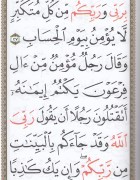 بِرَبِّى وَرَبِّكُم مِّن كُلِّ مُتَكَبِّرٍ
لَّا يُؤْمِنُ بِيَوْمِ ٱلْحِسَابِ ٢٧
وَقَالَ رَجُلٌ مُّؤْمِنٌ مِّنْ ءَالِ
فِرْعَوْنَ يَكْتُمُ إِيمَـٰنَهُۥٓ
أَتَقْتُلُونَ رَجُلًا أَن يَقُولَ رَبِّىَ
ٱللَّهُ وَقَدْ جَآءَكُم بِٱلْبَيِّنَـٰتِ
مِن رَّبِّكُمْ ۖ وَإِن يَكُ كَـٰذِبًا